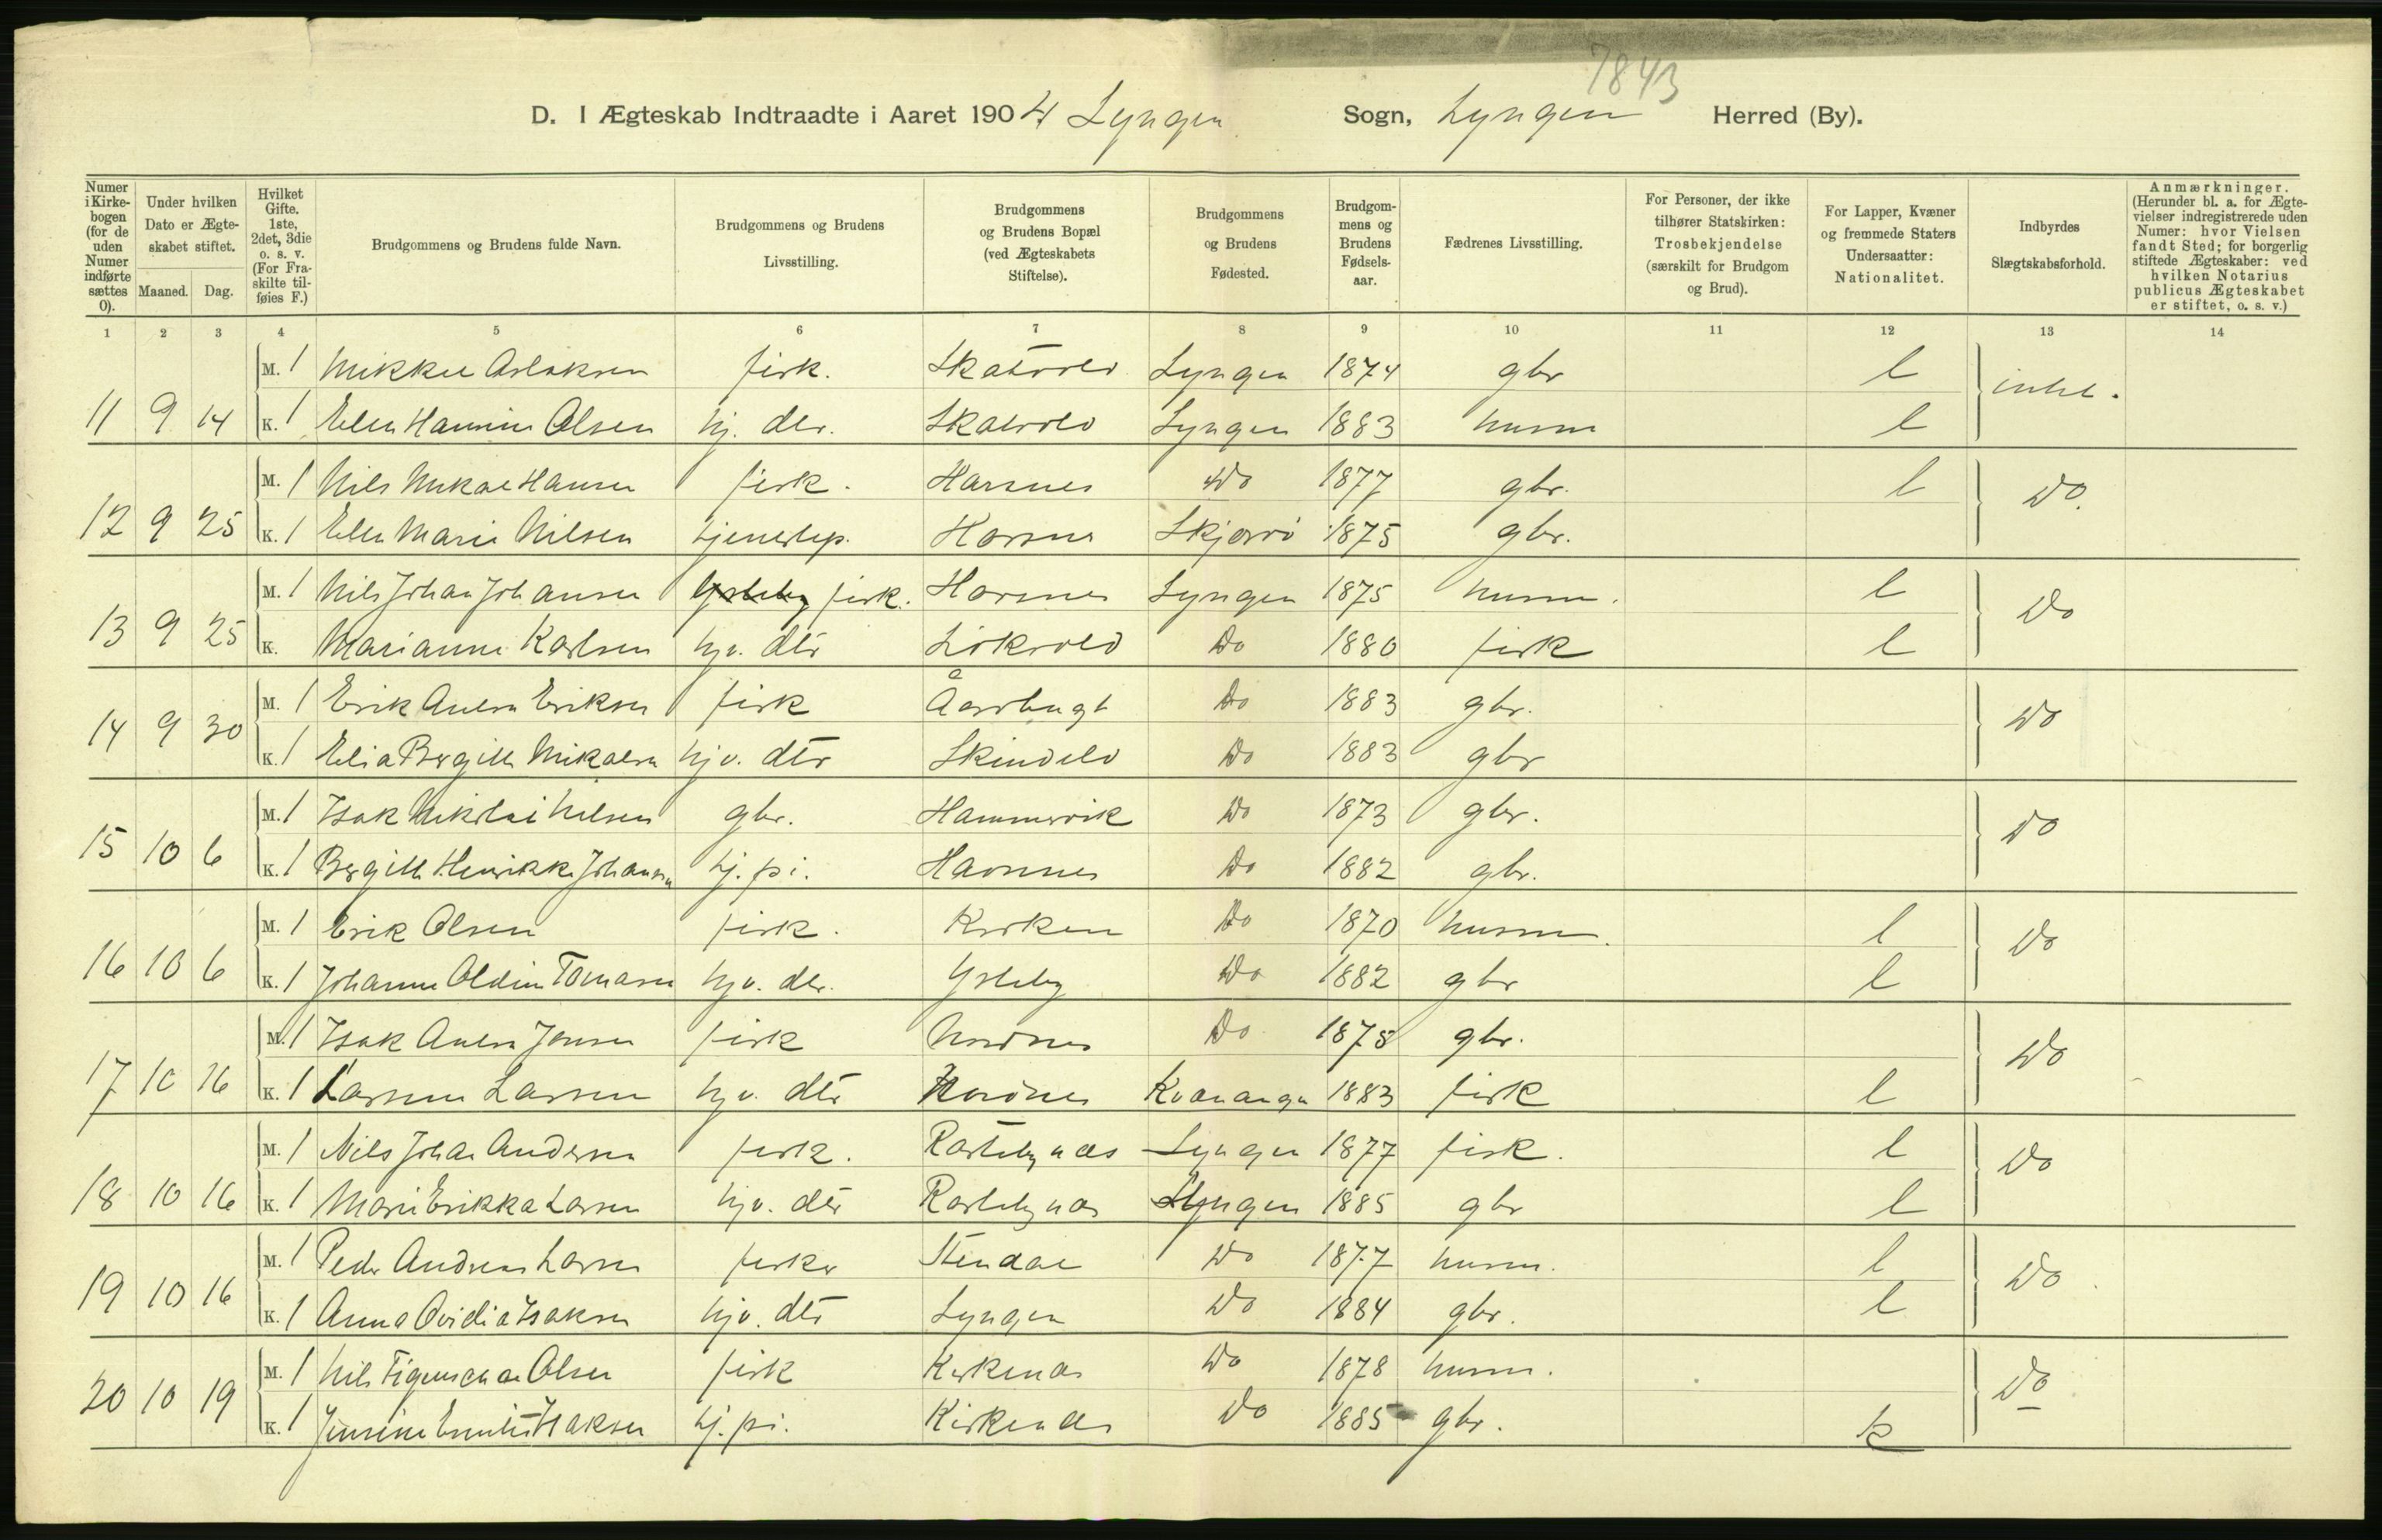 7843
D. I Ægteskab Indtraadte i Aaret 1904 Lyngen Sogn, Lyngen Herred (By).
Numer i Kirke-bogen (for de uden Numer indførte sættes 0).
Under hvilken Dato er Ægte-skabet stiftet.
Maaned. Dag.
Hvilket Gifte. 1ste, 2det, 3die o. s. v. (For Fra-skilte til-føies F.)
Brudgommens og Brudens fulde Navn.
Brudgommens og Brudens Livsstilling.
Brudgommens og Brudens Bopæl (ved Ægteskabets Stiftelse).
Brudgommens og Brudens Fødested.
Brudgom-mens og Brudens Fødsels-aar.
Fædrenes Livsstilling.
For Personer, der ikke tilhører Statskirken: Trosbekjendelse (særskilt for Brudgom og Brud).
For Lapper, Kvæner og fremmede Staters Undersaatter: Nationalitet.
Indbyrdes Slægtskabsforhold.
Anmærkninger. (Herunder bl. a. for Ægte-vielser indregistrerede uden Numer: hvor Vielsen fandt Sted; for borgerlig stiftede Ægteskaber: ved hvilken Notarius publicus Ægteskabet er stiftet, o. s. v.)
1 2 3 4 5 6 7 8 9 10 11 12 13 14
M. 1 Mikkel Aslaksen fisk. Lyngen 1874 gbr l
11 9 14 K. 1 Elen Olsen Lyngen 1883 husm l
M. 1 Nils Mikal Hansen fisk. Havnnes Do 1877 gbr. l Do.
12 9 25 K. 1 Elen Marie Nilsen Havnnes Skjervø 1875 gbr.
M. 1 Nils Johan Johansen fisk. Havnnes Lyngen 1875 husm. l Do
13 9 25 K. Marianne Karlsen hjv. dtr Do 1880 fisk l
M. 1 Erik Eriksen fisk Do 1883 gbr. Do
14 9 30 K. 1 Elia Bergitte Mikalsen hjv. dtr Do 1883 gbr
M. 1 Isak Nikolai Nilsen gbr. Hammervik Do 1873 gbr. Do
15 10 6 K. 1 Bergitte Henrikke Johansen tj. pi. Havnnes Do 1882 gbr.
M. 1 Erik Olsen fisk. Do 1870 husm. l Do
16 10 6 K. 1 Johanne Tomasen Do 1882 gbr l
M. 1 Isak Jensen fisk Nordnes Do 1878 gbr. Do
17 10 16 K. 1 Larsen hjv. dtr Nordnes Kvænangen 1883 fisk l
M. 1 Nils Johan Andersen fisk. Lyngen 1877 fisk. l Do
18 10 16 K. 1 Marie Erikka Larsen hjv. dtr Lyngen 1885 gbr l
M. 1 Peder Andreas Larsen fisker Stendal Do 1877 husm. l Do
19 10 16 K. 1 Anna Ovidia Isaksen hjv. dtr Lyngen Do 1884 gbr. l
M. 1 Nils Olsen fisk Do 1878 husm. Do
20 10 19 K. 1 Jensine Isaksen tj. pi. Do 1885 gbr. k